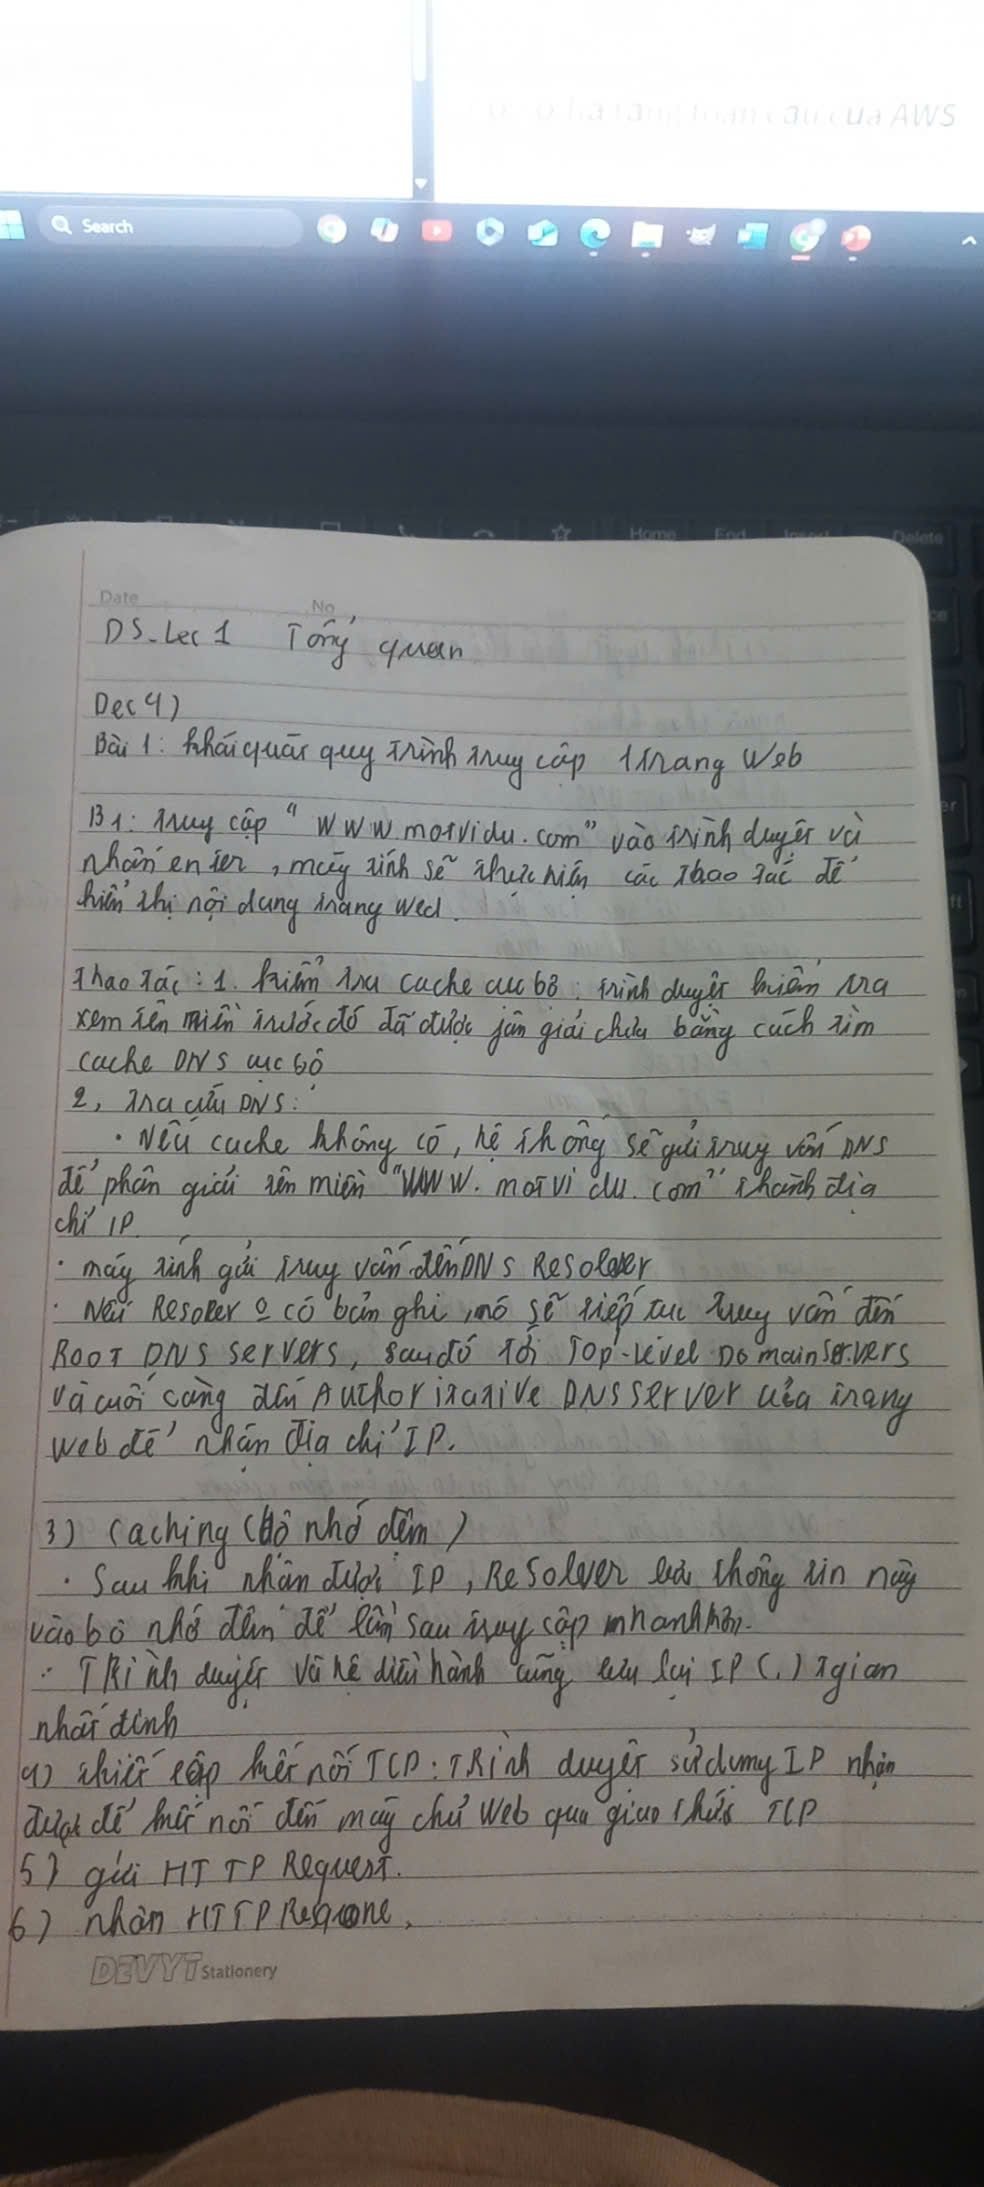 của AWS
Search
Home End Insert Delete
Date No
DS-Lec 1 Tổng quan
Dec 4)
Bài 1: khái quát quy trình truy cập 1 trang Web
B1: truy cập "www.motvidu.com" vào trình duyệt và
nhấn enter, máy tính sẽ thực hiện các thao tác để
hiển thị nội dung trang wed.
Thao tác: 1. kiểm tra cache cục bộ: trình duyệt kiểm tra
xem tên miền trước đó đã được giải chưa bằng cách tìm
cache DNS cục bộ
2, tra cứu DNS:
· Nếu cache không có, hệ thống sẽ gửi truy vấn DNS
để phân giải tên miền "WWW.motvidu.com" thành địa
chỉ IP
· máy tính gửi truy vấn đến DNS Resolver
· Nếu Resolver 0 có bản ghi, nó sẽ tiếp tục truy vấn đến
ROOT DNS servers, sau đó tới Top-Level Domain Servers
và cuối cùng đến Authoritative DNS server của trang
web để nhận địa chỉ IP.
3) Caching (bộ nhớ đệm)
· Sau khi nhận được IP, Resolver lưu thông tin này
vào bộ nhớ đệm để lần sau truy cập nhanh hơn.
· TRình duyệt và hệ điều hành cũng lưu lại IP (.) tgian
nhất định
4) thiết lập kết nối TCP: TRình duyệt sử dụng IP nhận
được để kết nối đến máy chủ Web qua giao thức TCP
5) gửi HTTP Request.
6) nhận HTTP
DEVYT Stationery